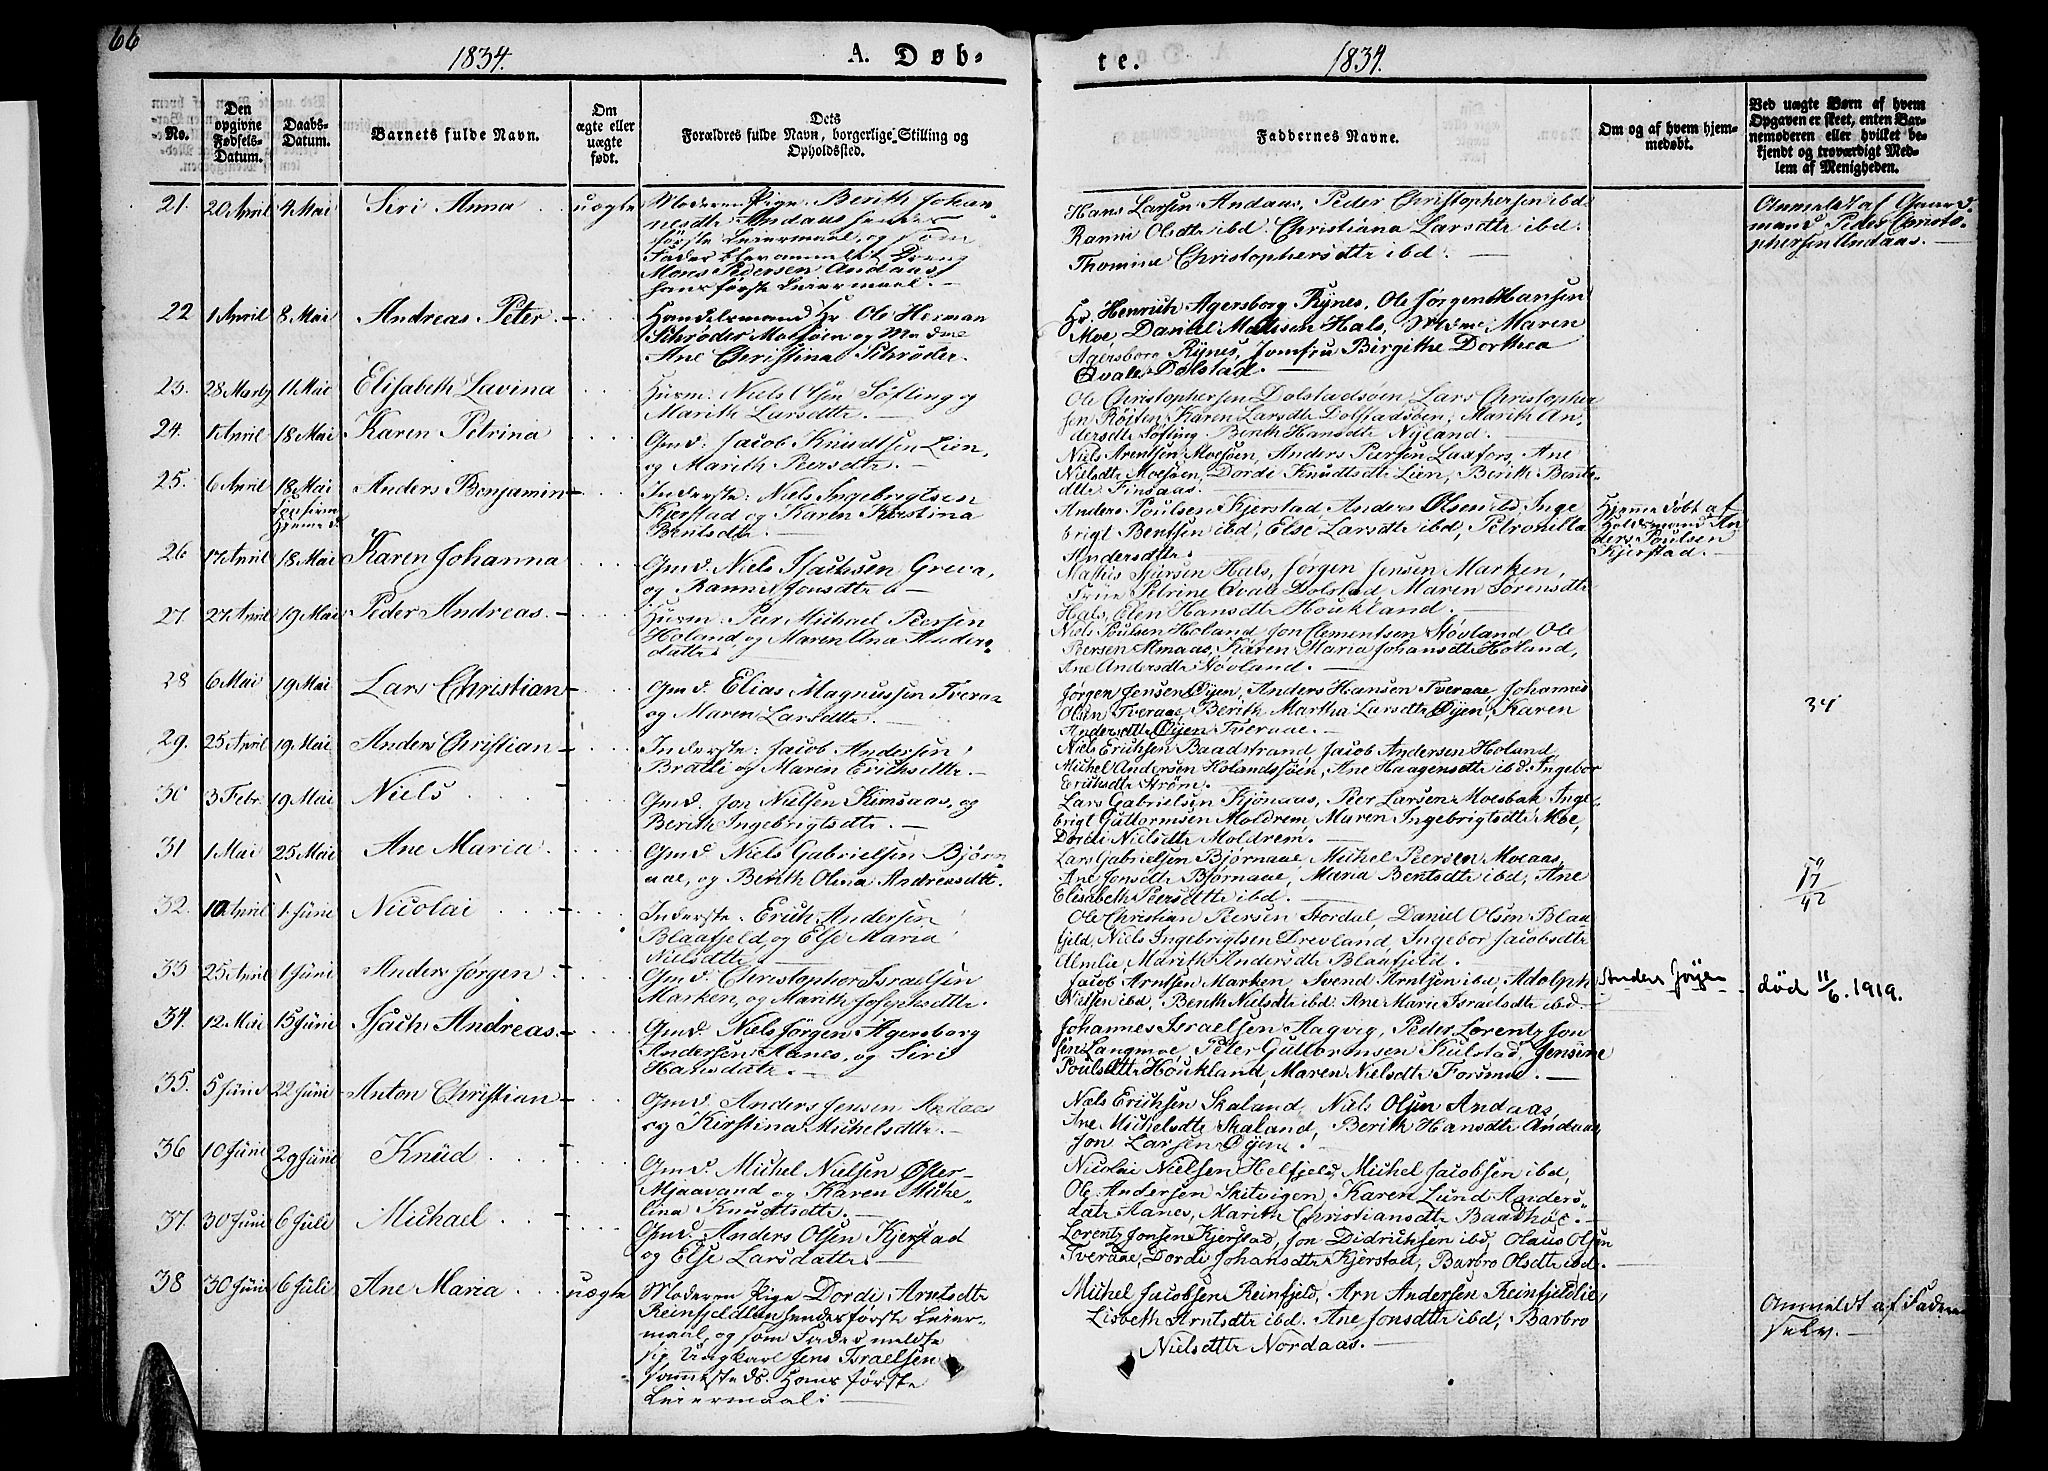 66
1834.
A. Døb-
te.
1834.
No.
Den opgivne Fødsels-Datum.
Daabs-Datum.
Barnets fulde Navn.
Om ægte eller uægte født.
Dets Forældres fulde Navn, borgerlige Stilling og Opholdssted.
Faddernes Navne.
Om og af hvem hjemmedøbt.
Ved uægte Børn af hvem Opgaven er skeet, enten Barnemoderen eller hvilket bekjendt og troværdigt Medlem af Menigheden.
21. 20 April 4 Mai Siri Anna uægte
Moderen Pige Berith Johan-
nesdtr Andaas hendes
første Leiermaal, og som
Fader blev anmeldt Dreng
Mons Pedersen Andaas,
hans første Leiermaal.
Hans Larsen Andaas, Peder Christophersen ibd
Ranni Olsdtr ibd. Christiana Larsdtr ibd.
Thomine Christophersdtr ibd.
Anmeldt af Gaard
mand Peder Christo-
phersen Andaas.
22 1 April 8 Mai Andreas Peter
Handelsmand Hr. Ole Herman
Schrøder Mosjøen og Madme
Ane Christina Schrøder.
Hr. Henrich Agersborg Rynes, Ole Jørgen Hansen
Moe, Daniel Matssen Hals, Madme Maren
Agersborg Rynes, Jomfru Birgithe Dorthea
Qvale Dolstad.
23. 28 Marty 11 Mai Elisabeth Lavina
Huusm: Niels Olsen Søfting og
Marith Larsdtr.
Ole Christophersen Dolstadsøen, Lars Christopher
sen Røiten, Karen Larsdtr Dolstadsøen, Marith An-
dersdtr Søfting Berith Hansdtr Nyland.
24. 1 April 18 Mai Karen Petrina
Gmd: Jacob Knudtsen Lien,
og Marith Peersdtr.
Niels Arentsen Moesøen, Anders Peersen Laxfors, Ane
Nielsdtr Moesøen, Dordi Knudtsdtr Lien, Berith Bents-
dtr Finsaas.
25. 6 April 18 Mai Anders Benjamin
Inderste: Niels Ingebrigtsen
Kjerstad og Karen Kirstina
Bentsdtr.
Anders Poulsen Kjerstad, Anders Olsen ibd, Inge
brigt Bentsen ibd, Else Larsdtr ibd, Petronilla
Andersdtr.
Hjemmedøbt af
Holdsmand An
ders Poulsen
Kjerstad.
26 17 April 18 Mai Karen Johanna
Gmd. Niels Isachsen Greva,
og Ranni Jonsdtr
Mathis Siursen Hals, Jørgen Jensen Marken,
Frue Petrine Qvale Dolstad Maren Sørensdtr
Hals, Elen Hansdtr Houkland.
27. 27 April 19 Mai Peder Andreas.
Huusm: Peer Michael Peersen
Holand og Maren Ana Anders-
datter
Niels Poulsen Holand, Jon Clementsen Støvland, Ole
Peersen Almaas, Karen Maria Johansdtr Holand,
Ane Andersdtr Støvland.
28 6 Mai 19 Mai Lars Christian
Gmd. Elias Magnussen Tveraa
og Maren Larsdtr.
Jørgen Jensen Øyen, Anders Hansen Tveraae, Johannes
Olsen Tveraae, Berith Martha Larsdtr Øyen, Karen
Andersdtr Øyen Tveraae.
34
29. 25 April 19 Mai Anders Christian
Inderste: Jacob Andersen
Bratli og Maren Erichsdtr.
Niels Erichsen Baadstrand, Jacob Andersen Holand,
Michel Andersen Holandssøen, Ane Haagensdtr ibd. Ingebor
Erichsdtr Strøm.
30 3 Febr. 19 Mai Niels
Gmd. Jon Nielsen Kimsaas, og
Berith Ingebrigtsdtr.
Lars Gabrielsen Kjønaas, Peer Larsen Moesbak Inge-
brigt Guttormsen Moldrem, Maren Ingebrigtsdtr Moe,
Dordi Nielsdtr Moldrem.
31 1 Mai 25 Mai Ane Maria
Gmd. Niels Gabrielsen Bjørn
aae, og Berith Olina Andreasdtr.
Lars Gabrielsen Bjørnaae, Michel Peersen Moeaas,
Ane Jonsdtr Bjørnaae, Maria Bentsdtr ibd, Ane
Elisabeth Peersdtr ibd.
59
17
42
32. 10 April 1 Juni Nicolai
Inderste: Erich Andersen
Blaafjeld, og Else Maria
Nielsdtr
Ole Christian Peersen Stordal, Daniel Olsen Blaa
fjeld, Niels Ingebrigtsen Drevland, Ingebor Jacobsdtr
Almlie, Marith Andersdtr Blaafjeld.
33 25 April 1 Juni Anders Jørgen
Gmd. Christopher Israelsen
Marken, og Marith Josephsdtr.
Jacob Arntsen Marken, Svend Arntsen ibd, Adolph
Nielsen ibd, Berith Nielsdtr ibd. Ane Marie Israelsdtr ibd.
Anders Jørgen
død 11/6. 1919.
34 12 Mai 15 Juni Isach Andreas.
Gmd. Niels Jørgen Agersborg
Andersen Aanes, og Siri
Hansdatr.
Johannes Israelsen Aagvig, Peder Lorentz Jon
sen Langmoe, Peter Guttormsen Kulstad, Jensine
Poulsdtr Houkland, Maren Nielsdtr Forsmoe.
35. 5 Juni 22 Juni Anton Christian
Gmd. Anders Jensen Andaas
og Kirstina Michelsdtr.
Niels Erichsen Skaland, Niels Olsen Andaas,
Ane Michelsdtr Skaland, Berith Hansdtr Andaas,
Jon Larsen Øyen.
36 10 Juni 29 Juni Knud
Gmd. Michel Nielsen Øster-
Mjaavand og Karen Miche-
lina Knudtsdtr.
Nicolai Nielsen Helfjeld, Michel Jacobsen ibd,
Ole Andersen Skitvigen, Karen Lund Anders-
datr Aanes, Marith Christiansdtr Baadhøe.
37. 30 Juni 6 Juli Michael
Gmd. Anders Olsen Kjerstad
og Else Larsdatter
Lorentz Jonsen Kjerstad, Jon Didrichsen ibd, Olaus Olsen
Tveraae, Dordi Johansdtr Kjerstad, Barbro Olsdtr ibd.
38 30 Juni 6 Juli Ane Maria uægte
Moderen Pige Dordi Arntsdtr
Reinfjeldlien hendes første Leier-
maal, og som Fader meldte
sig Ungkarl Jens Israelsen
sammesteds. Hans første
Leiermaal
Michel Jacobsen Reinfjeld, Arn Andersen Reinfjeldlie,
Lisbeth Arntsdtr ibd. Ane Jonsdtr ibd, Barbro
Nielsdtr Nordaas.
Anmeldt af Faderen
selv.